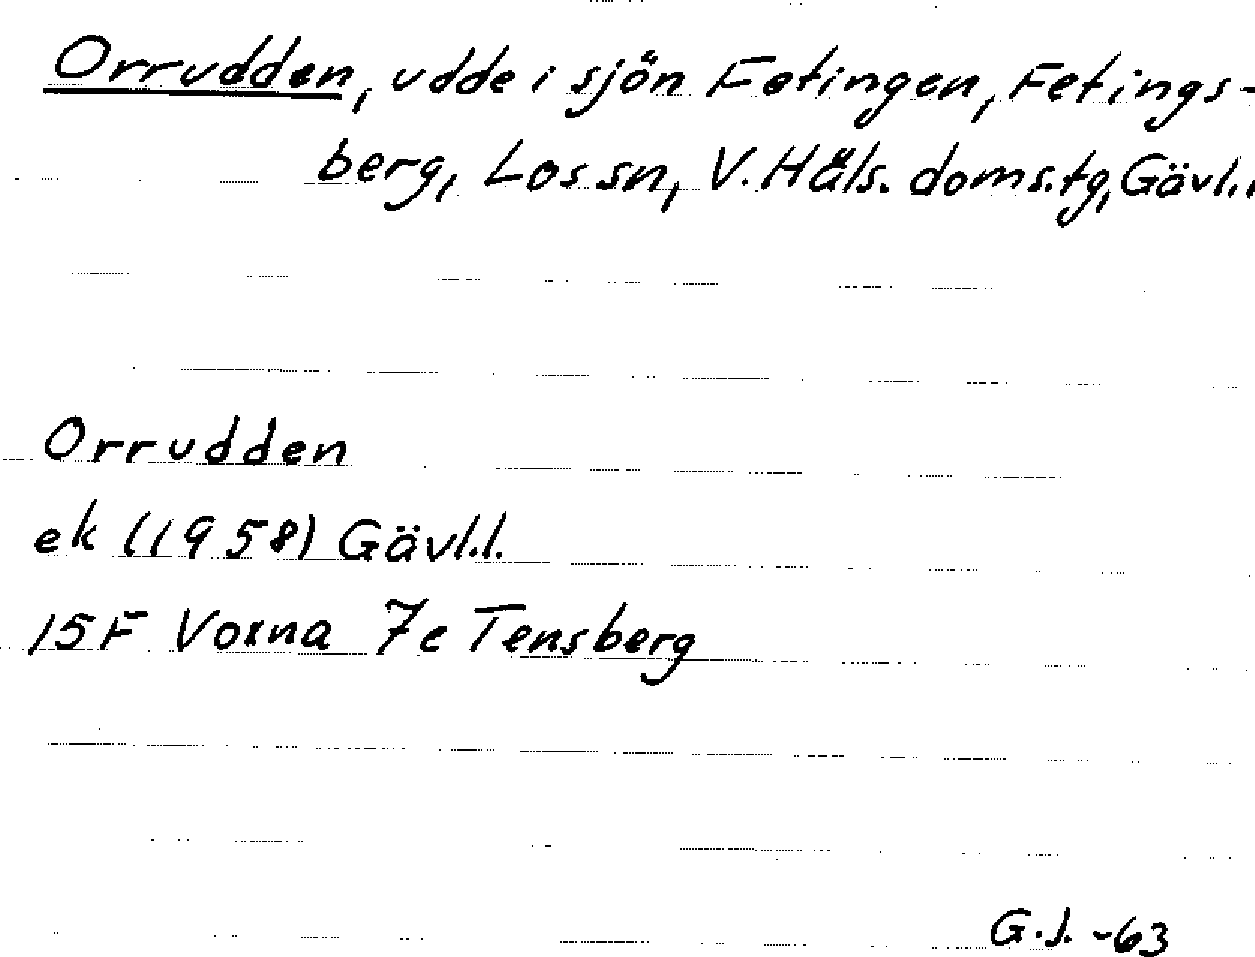 Orrudden, udde i sjön Fetingen, Fetings-
berg, Los sn, V. Häls. doms.tg, Gävl.l.
Orrudden
ek (1958) Gävl.l.
15F Voxna 7c Tensberg
G.J. -63